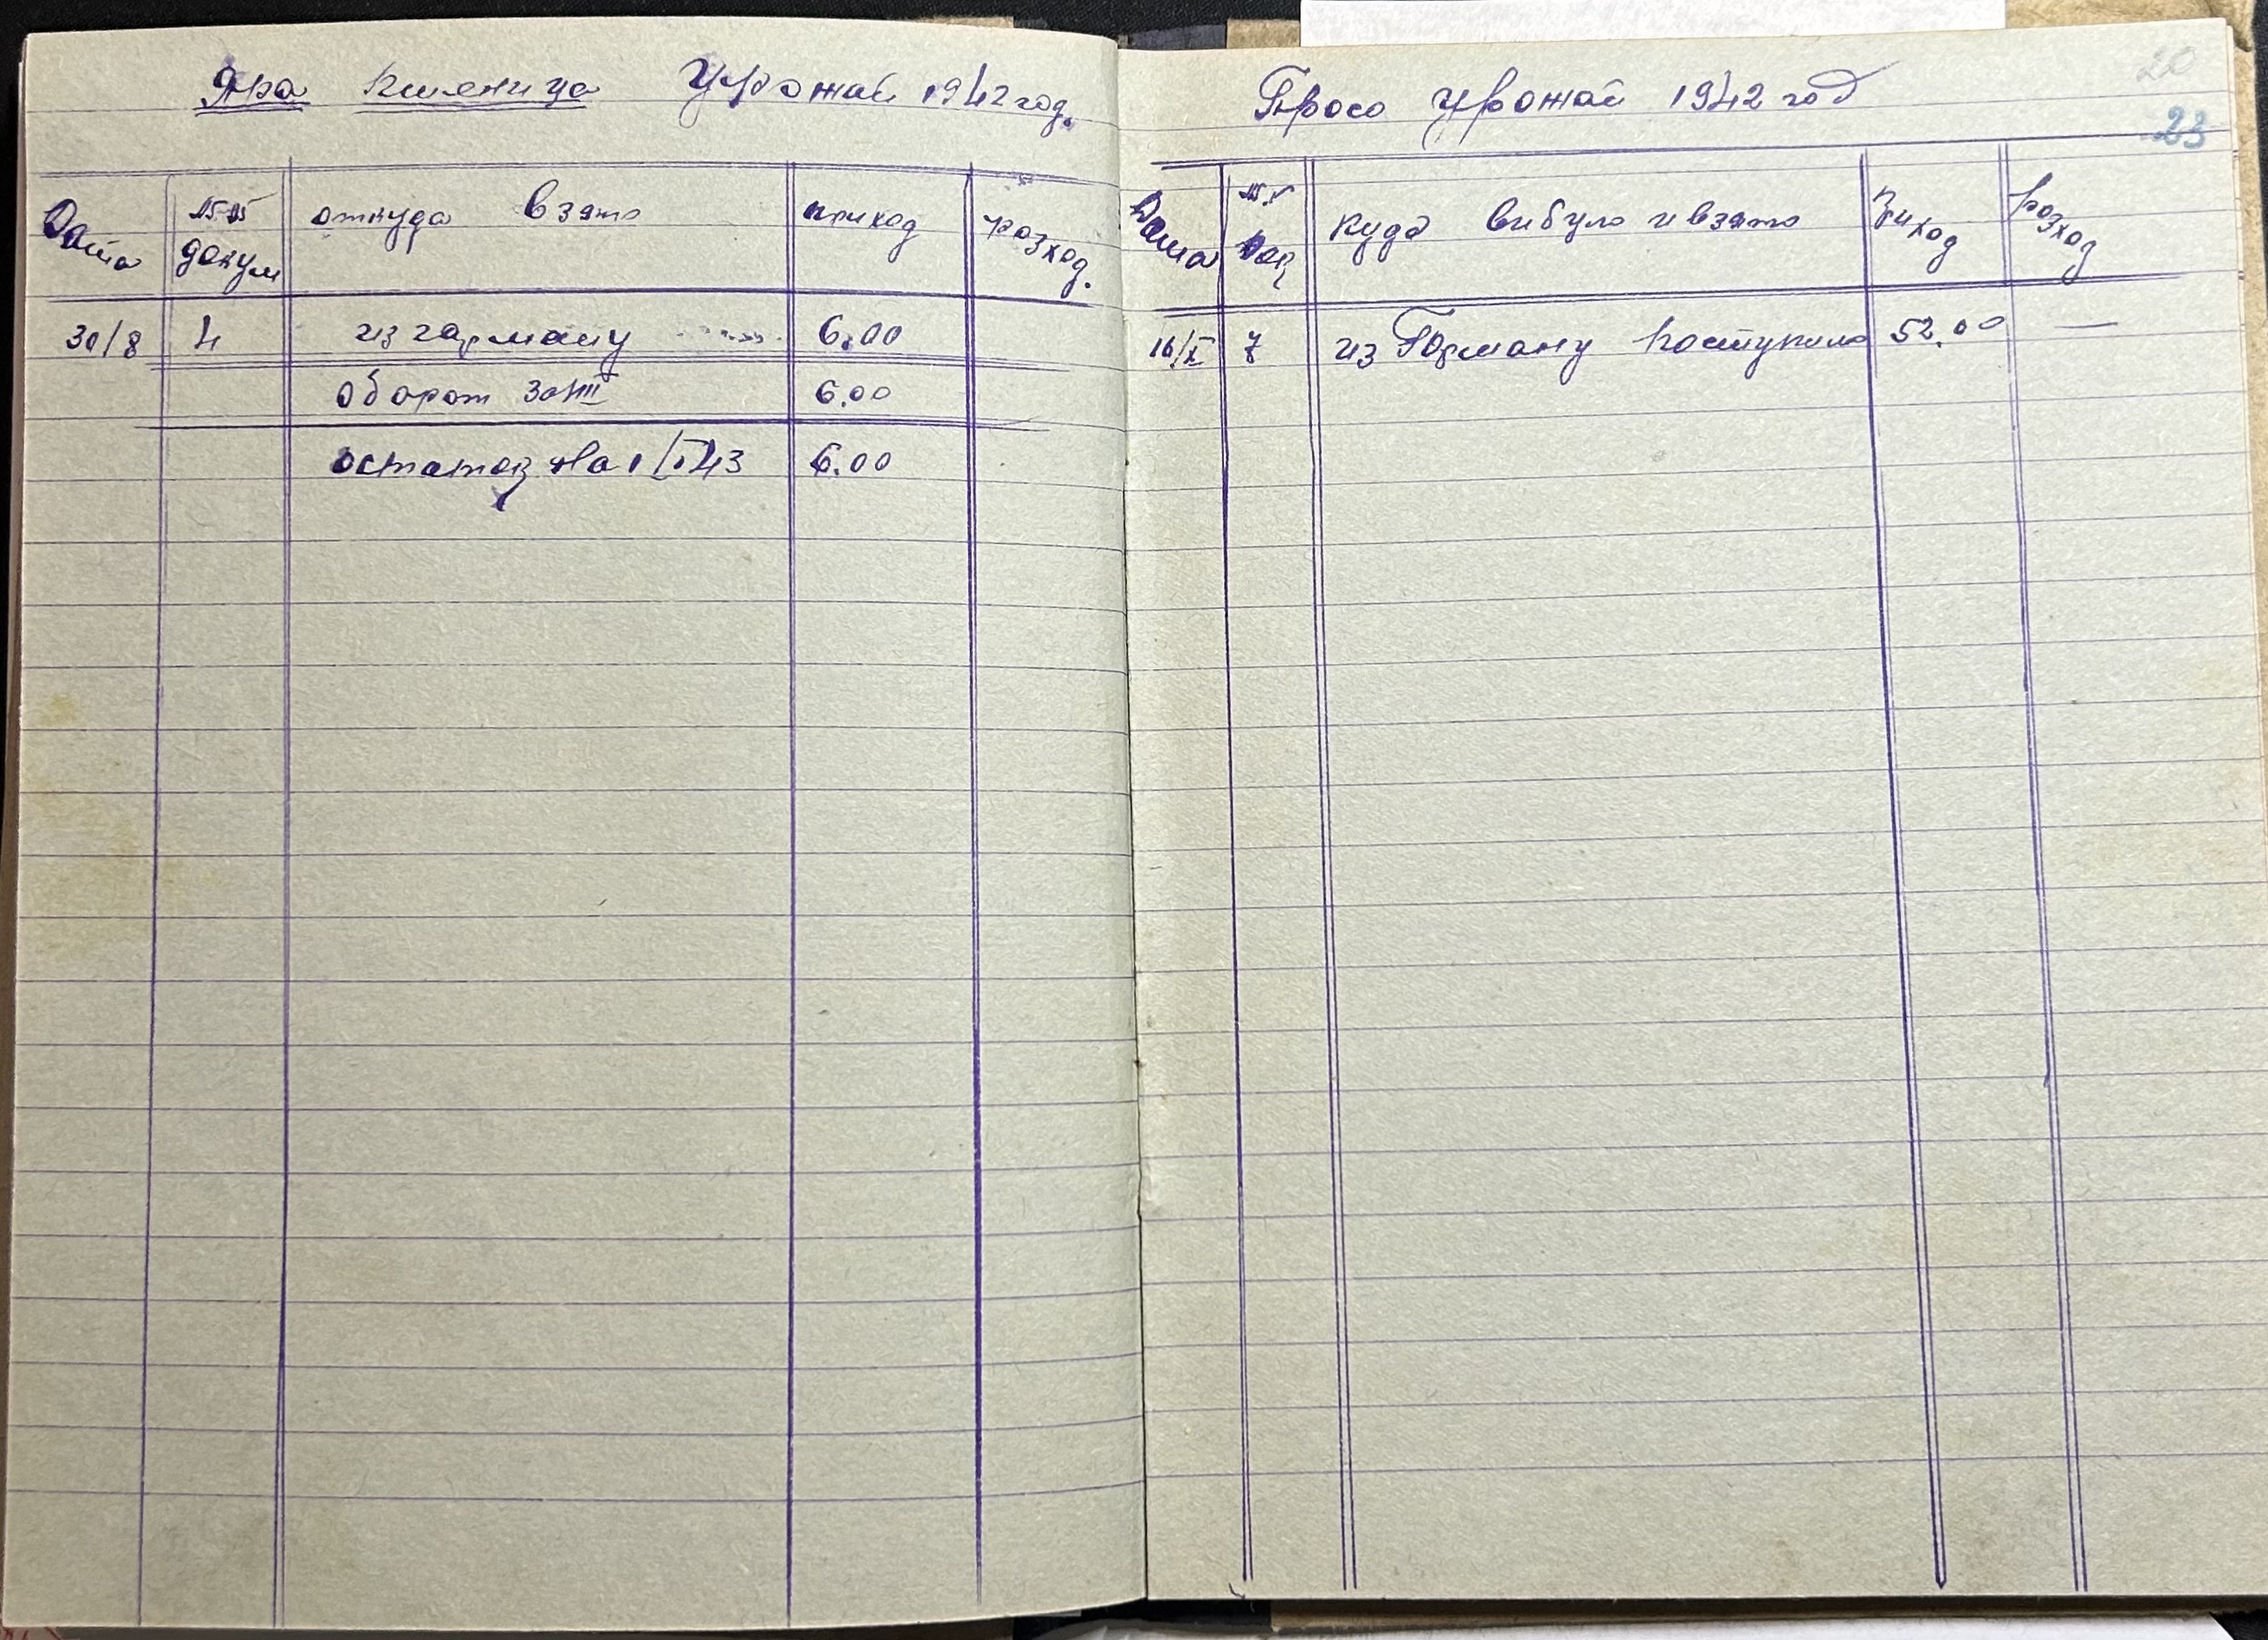 Яра пшеница Урожай 1942 год.
Дата
№№ докум
откуда взято
приход
розход.
30/8 4 из гарману 6.00
Оборот за
6.00
остаток на 1/I 43 6.00
20
23
Просо урожай 1942 год
Дата
№№ док
куда вибуло и взято
Приход
розход
16/X 7 из Гарману поступило 52.00 —